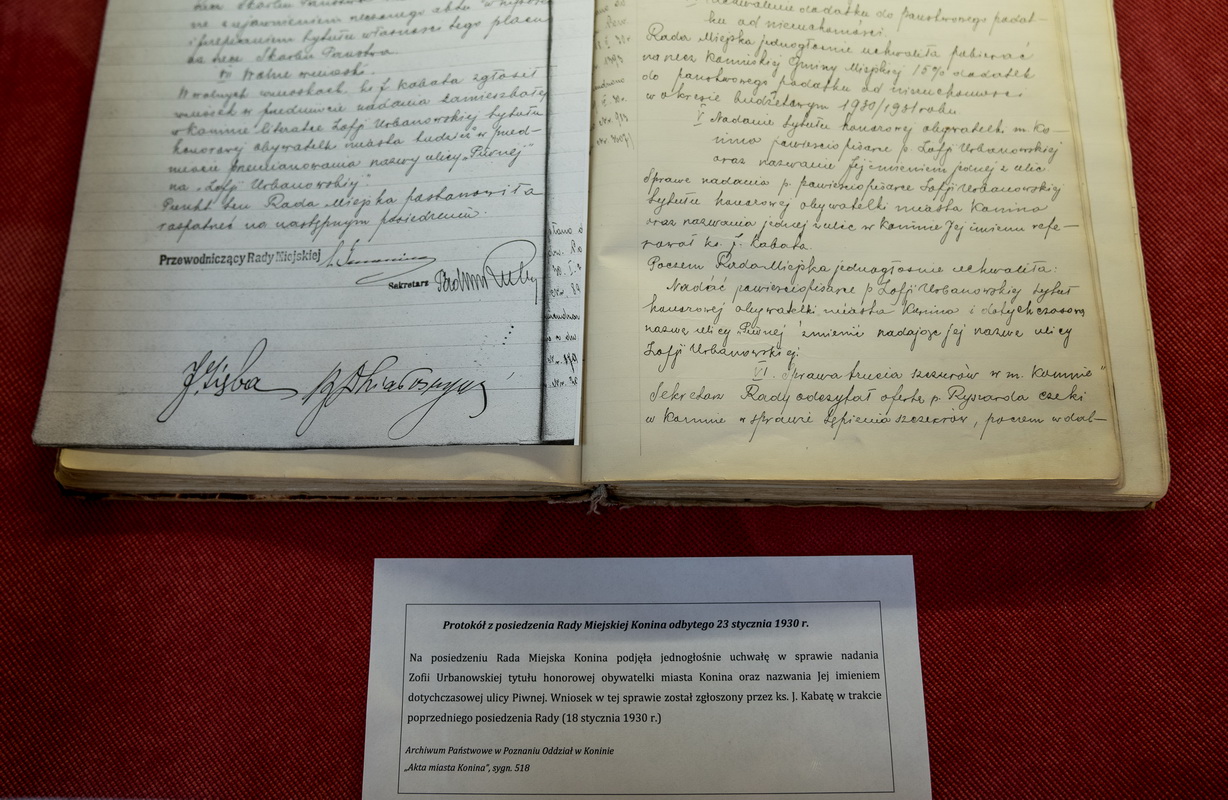 ne z ujawnieniem
i przepisaniem tytułu własności tego placu
na rzecz Skarbu Państwa.
Wolne wnioski.
W wolnych wnioskach ks. J. Kabata zgłosił
wniosek w przedmiocie nadania zamieszkałej
w Koninie literatce Zofji Urbanowskiej tytułu
honorowej obywatelki miasta tudzież w przed-
miocie przemianowania nazwy ulicy „Piwnej”
na „Zofji Urbanowskiej”.
Punkt ten Rada Miejska postanowiła
rozpatrzeć na następnym posiedzeniu.
Przewodniczący Rady Miejskiej
Sekretarz
dodatku do państwowego podat-
ku od nieruchomości.
Rada Miejska jednogłośnie uchwaliła pobierać
na rzecz Konińskiej Gminy Miejskiej 15% dodatek
do państwowego podatku od nieruchomości
w okresie budżetowym 1930/1931 roku.
V Nadanie tytułu honorowej obywatelki m. Ko-
nina powieściopisarce p. Zofji Urbanowskiej
oraz nazwanie Jej imieniem jednej z ulic
Sprawę nadania p. powieściopisarce Zofji Urbanowskiej
tytułu honorowej obywatelki miasta Konina
oraz nazwania jednej z ulic w Koninie Jej imieniu refe-
rował ks. J. Kabata.
Poczem Rada Miejska jednogłośnie uchwaliła:
Nadać powieściopisarce p. Zofji Urbanowskiej tytuł
honorowej obywatelki miasta Konina i dotychczasową
nazwę ulicy „Piwnej” zmienić nadając jej nazwę ulicy
Zofji Urbanowskiej.
VI. Sprawa trucia szczurów w m. Koninie
Sekretarz Rady odczytał ofertę p. Ryszarda
w Koninie w sprawie tępienia szczurów, poczem w dal-
Protokół z posiedzenia Rady Miejskiej Konina odbytego 23 stycznia 1930 r.
Na posiedzeniu Rada Miejska Konina podjęła jednogłośnie uchwałę w sprawie nadania
Zofii Urbanowskiej tytułu honorowej obywatelki miasta Konina oraz nazwania Jej imieniem
dotychczasowej ulicy Piwnej. Wniosek w tej sprawie został zgłoszony przez ks. J. Kabatę w trakcie
poprzedniego posiedzenia Rady (18 stycznia 1930 r.)
Archiwum Państwowe w Poznaniu Oddział w Koninie
„Akta miasta Konina”, sygn. 518